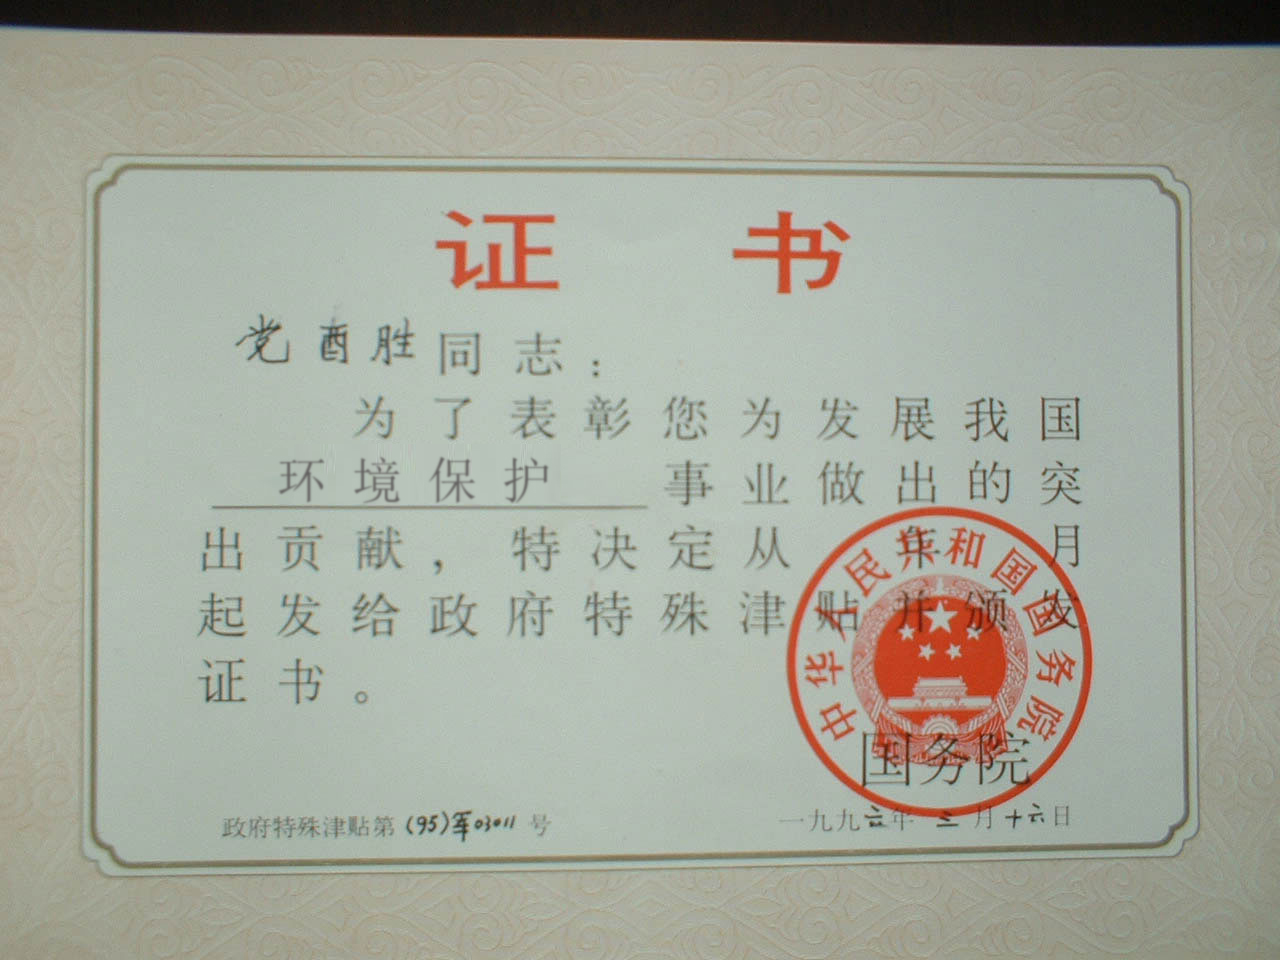 证书
党酉胜同志：
为了表彰您为发展我国
环境保护事业做出的突
出贡献，特决定从 年 月
起发给政府特殊津贴并颁发
证书。
中华人民共和国国务院
国务院
政府特殊津贴第(95)军03011号
一九九六年三月十六日